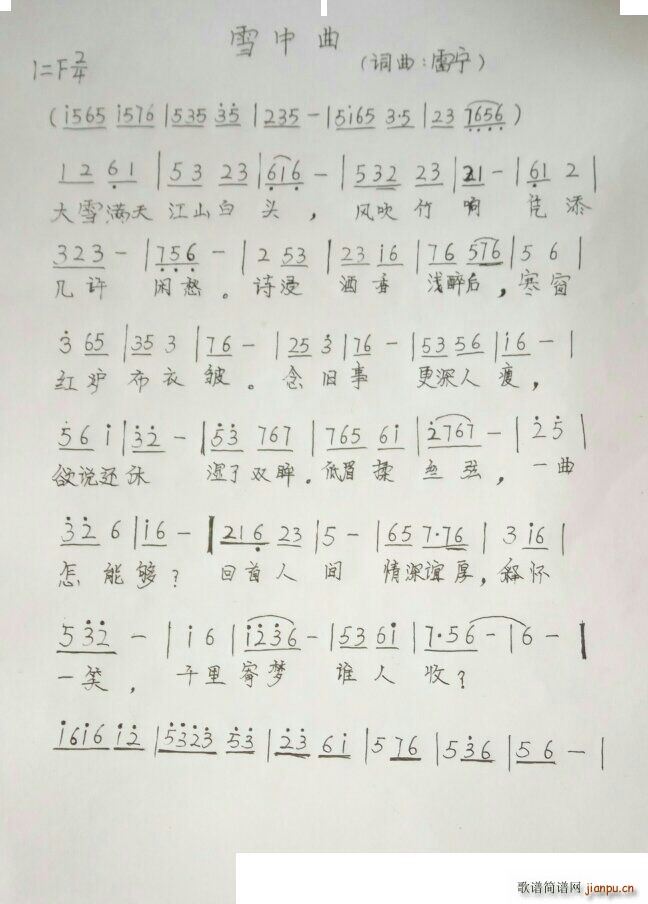 雪中曲
1=F 2/4
(词曲:雷宁)
(i565 i576 | 535 35 | 235 - | 5i65 3·5 | 23 7656)
1 2 61 | 53 23 | 616 - | 532 23 | 21 - | 61 2 |
大雪满天 江山白头, 风吹竹啊 凭添
323 - | 756 - | 2 53 | 23 i6 | 76 576 | 5 6 |
几许 闲愁。诗漫 酒香 浅醉后,寒窗
3 65 | 35 3 | 76 - | 25 3 | 76 - | 53 56 | i6 - |
红炉 布衣 皱。念旧事 更深人瘦,
56 i | 32 - | 53 767 | 765 6i | 2767 - | 2 5 |
欲说还休 湿了双眸。低眉揉 丝弦,一曲
32 6 | i6 - | 216 23 | 5 - | 65 7·76 | 3 i6 |
怎能够? 回首人间 情深谊厚,释怀
532 - | i 6 | i236 - | 53 6i | 7·56 - | 6 - |
一笑, 千里寄梦 谁人收?
i6i6 i2 | 5323 53 | 23 6i | 5 76 | 536 | 56 - |
歌谱简谱网 jianpu.cn